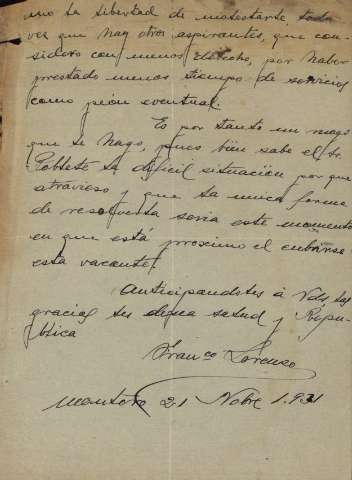 mo la libertad de molestarte, toda
vez que hay otros aspirantes, que con-
sidero con menos derecho, por haber
prestado menos tiempo de servicios
como peón eventual.
Es por tanto un ruego
que te hago, pues bien sabe el Sr.
Poblete la dificil situación por que
atravieso y que la unica forma
de resolverla seria este momento
en que está proximo el cubrirse
esta vacante.
Anticipandoles à Vds. las
gracias les desea salud y Repu-
blica
Franco Lorenzo
Montoro 21 Nobre 1.931